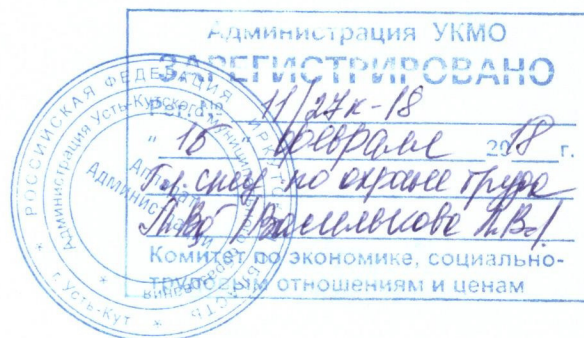 Администрация УКМО
ЗАРЕГИСТРИРОВАНО
Рег. № 11/27к-18
" 16 " февраля 2018 г.
Гл. спец по охране труда
/Василькова Л.В./
Комитет по экономике, социально-
трудовым отношениям и ценам
РОССИЙСКАЯ ФЕДЕРАЦИЯ
Администрация Усть-Кутского муниципального образования
Аппарат
Администрации
г. Усть-Кут